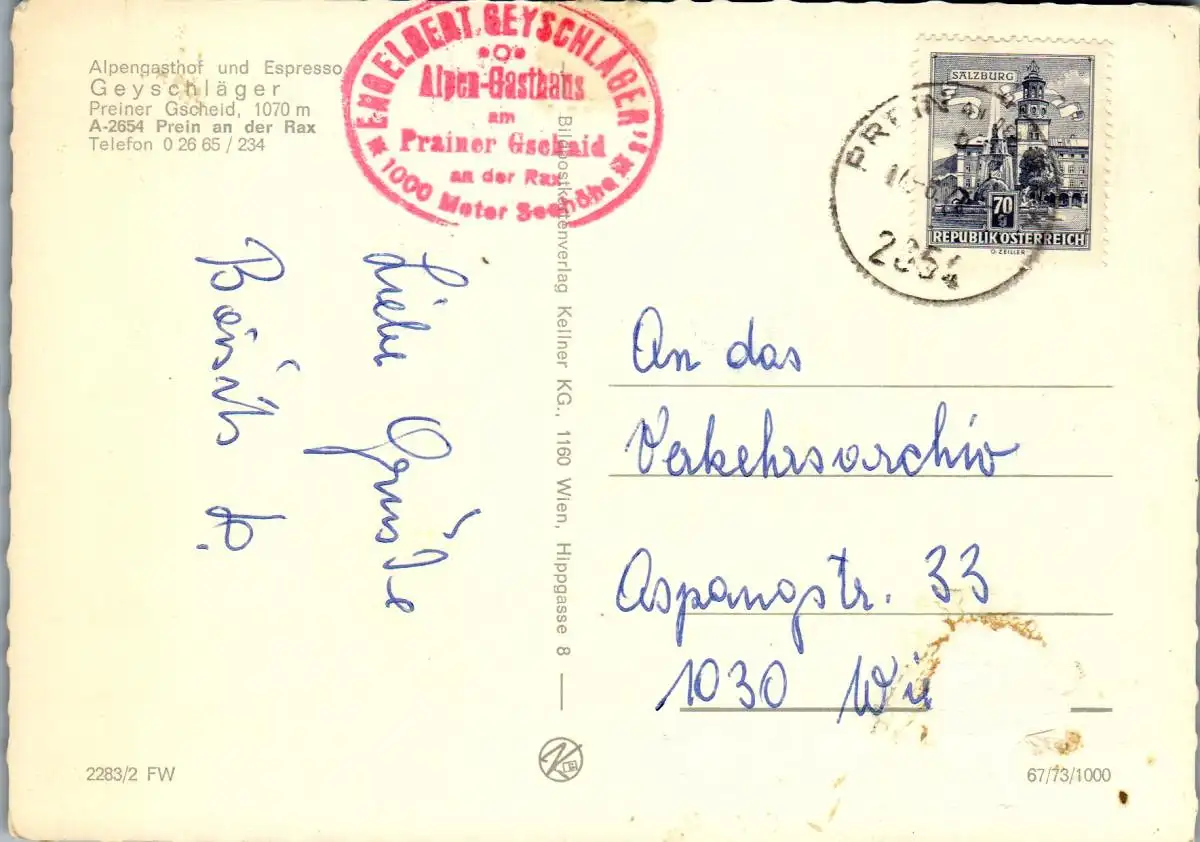 Alpengasthof und Espresso
Geyschläger
Preiner Gscheid, 1070 m
A-2654 Prein an der Rax
Telefon 0 26 65 / 234
ENGELBERT GEYSCHLÄGER'S
Alpen-Gasthaus
am
Prainer Gschaid
an der Rax
1000 Meter Seehöhe
SALZBURG
70
g
REPUBLIK ÖSTERREICH
O. ZEILLER
PREIN
2654
Liebe Grüße
Bildpostkartenverlag Kellner KG., 1160 Wien, Hippgasse 8
An das
Verkehrsarchiv
Aspangstr. 33
1030
2283/2 FW
67/73/1000